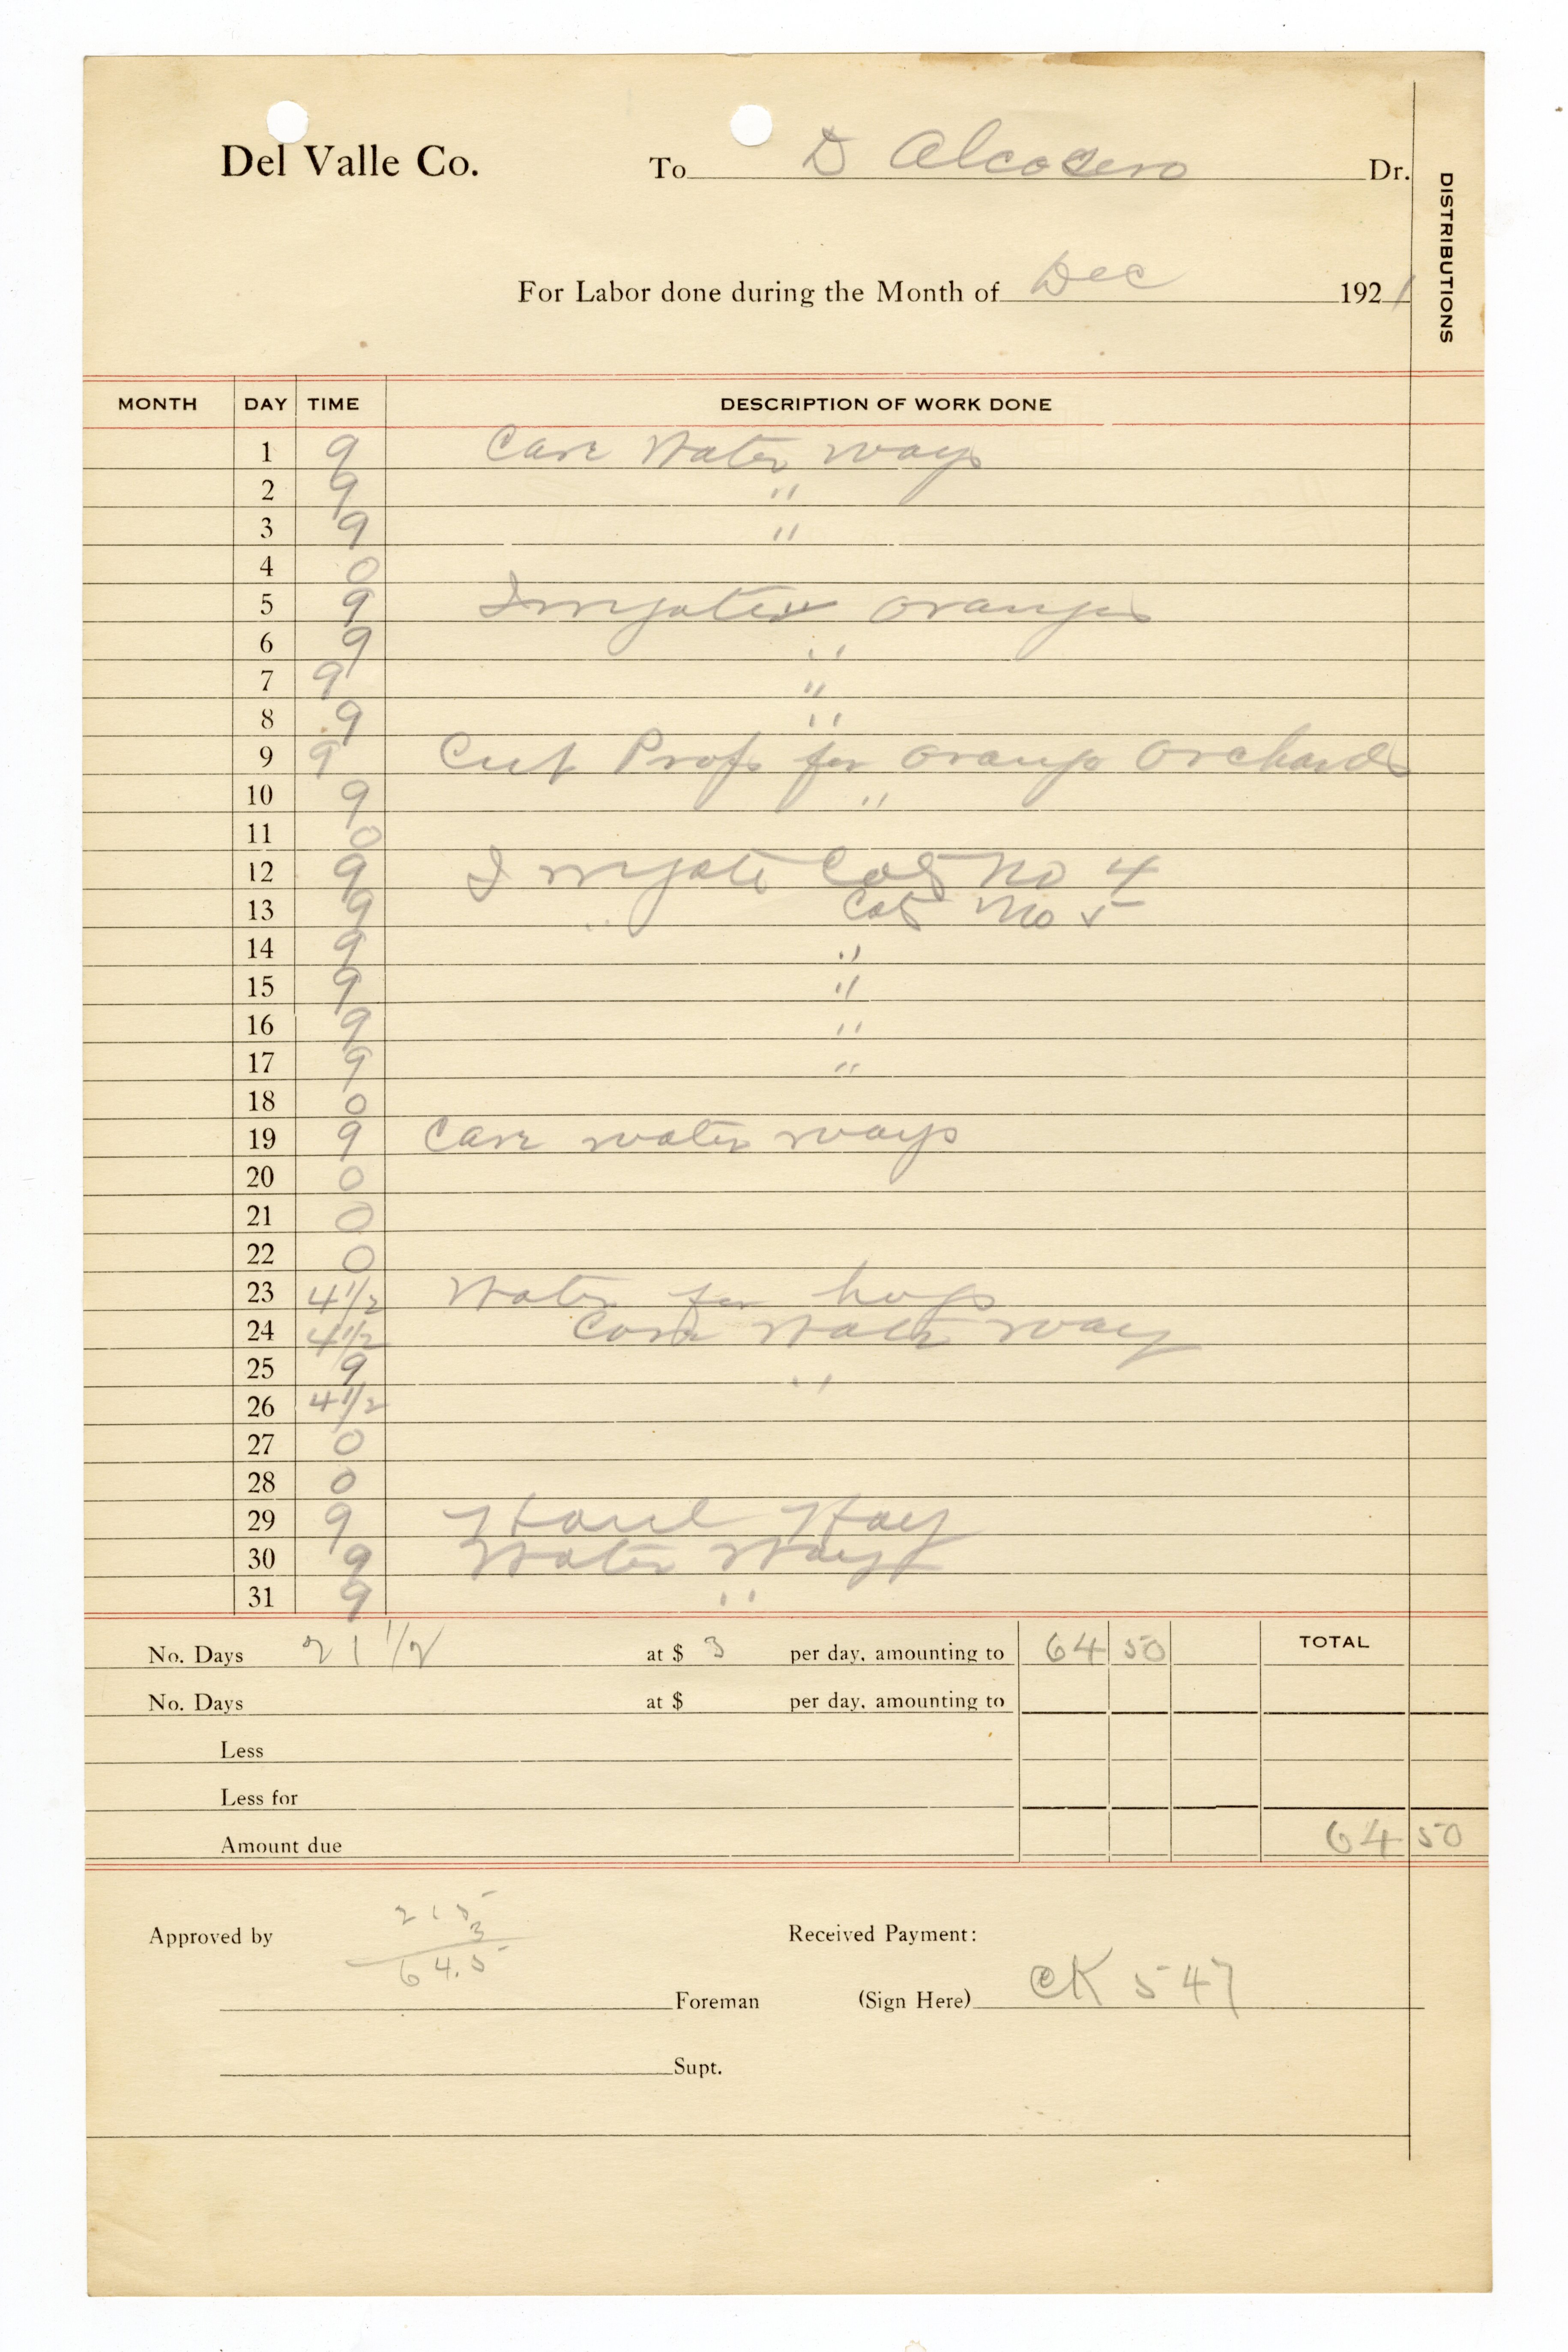 Del Valle Co. To D Alcosero Dr.
DISTRIBUTIONS
For Labor done during the Month of Dec 1921
MONTH DAY TIME DESCRIPTION OF WORK DONE
1 9 Care Water ways
2 9 "
3 9 "
4 0
5 9 Oranges
6 9 "
7 9 "
8 9 "
9 9 Cut Props for Orange Orchards
10 9 "
11 0
12 9 Irrygate No 4
13 9 " No 5
14 9 "
15 9 "
16 9 "
17 9 "
18 0
19 9 Care water ways
20 0
21 0
22 0
23 4 1/2 Water for hogs
24 4 1/2 Care Water way
25 9 "
26 4 1/2
27 0
28 0
29 9 Haul Hay
30 9 Water Ways
31 9 "
No. Days 21 1/2 at $ 3 per day, amounting to 64 50 TOTAL
No. Days at $ per day, amounting to
Less
Less for
Amount due 64 50
21 5
Approved by 3 Received Payment:
64.5
Foreman (Sign Here) CK 547
Supt.